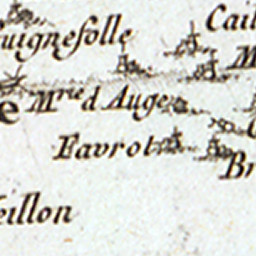 uignefolle
Cail
M
e Mrie d Auge
Favrot
Br
eillon